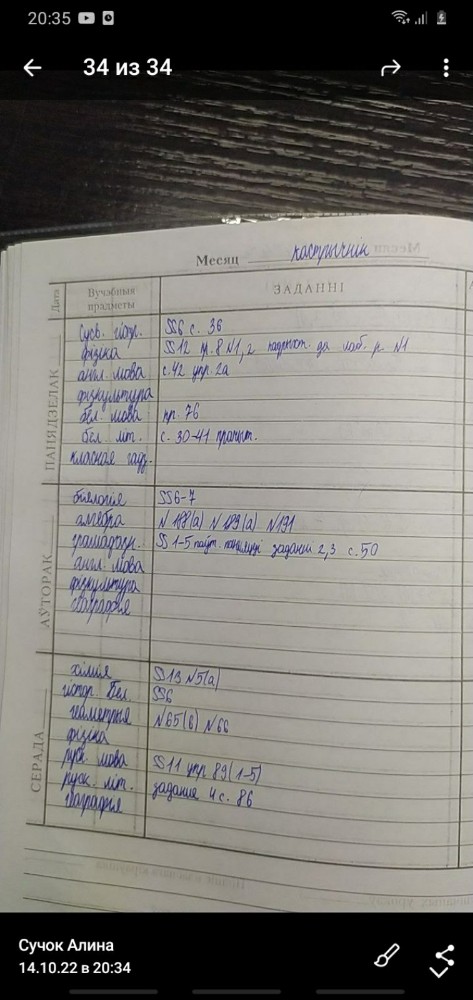 20:35
34 из 34
Месяц кастрычнік
Дата
Вучэбныя прадметы
ЗАДАННІ
ПАНЯДЗЕЛАК
Сусв. гістр. §§6 с. 36
фізіка §§12 пр. 8 N1, 2 падрыхт. да лаб. р. N1
англ. мова с.42 упр. 2а
фізкультура
бел. мова пр. 76
бел. літ. с. 30-41 прачыт.
класная гадз.
АЎТОРАК
біялогія §§6-7
алгебра N 188(а) N 189(а) N191
грамадазн. §§ 1-5 паўт. заданні 2,3 с.50
англ. мова
фізкультура
геаграфія
СЕРАДА
хімія §§13 N5(а)
гістор. Бел. §§6
геаметрыя N65(в) N66
фізіка
руск. мова §§11 упр 89(1-5)
руск. літ. задание 4 с. 86
геаграфія
Сучок Алина
14.10.22 в 20:34